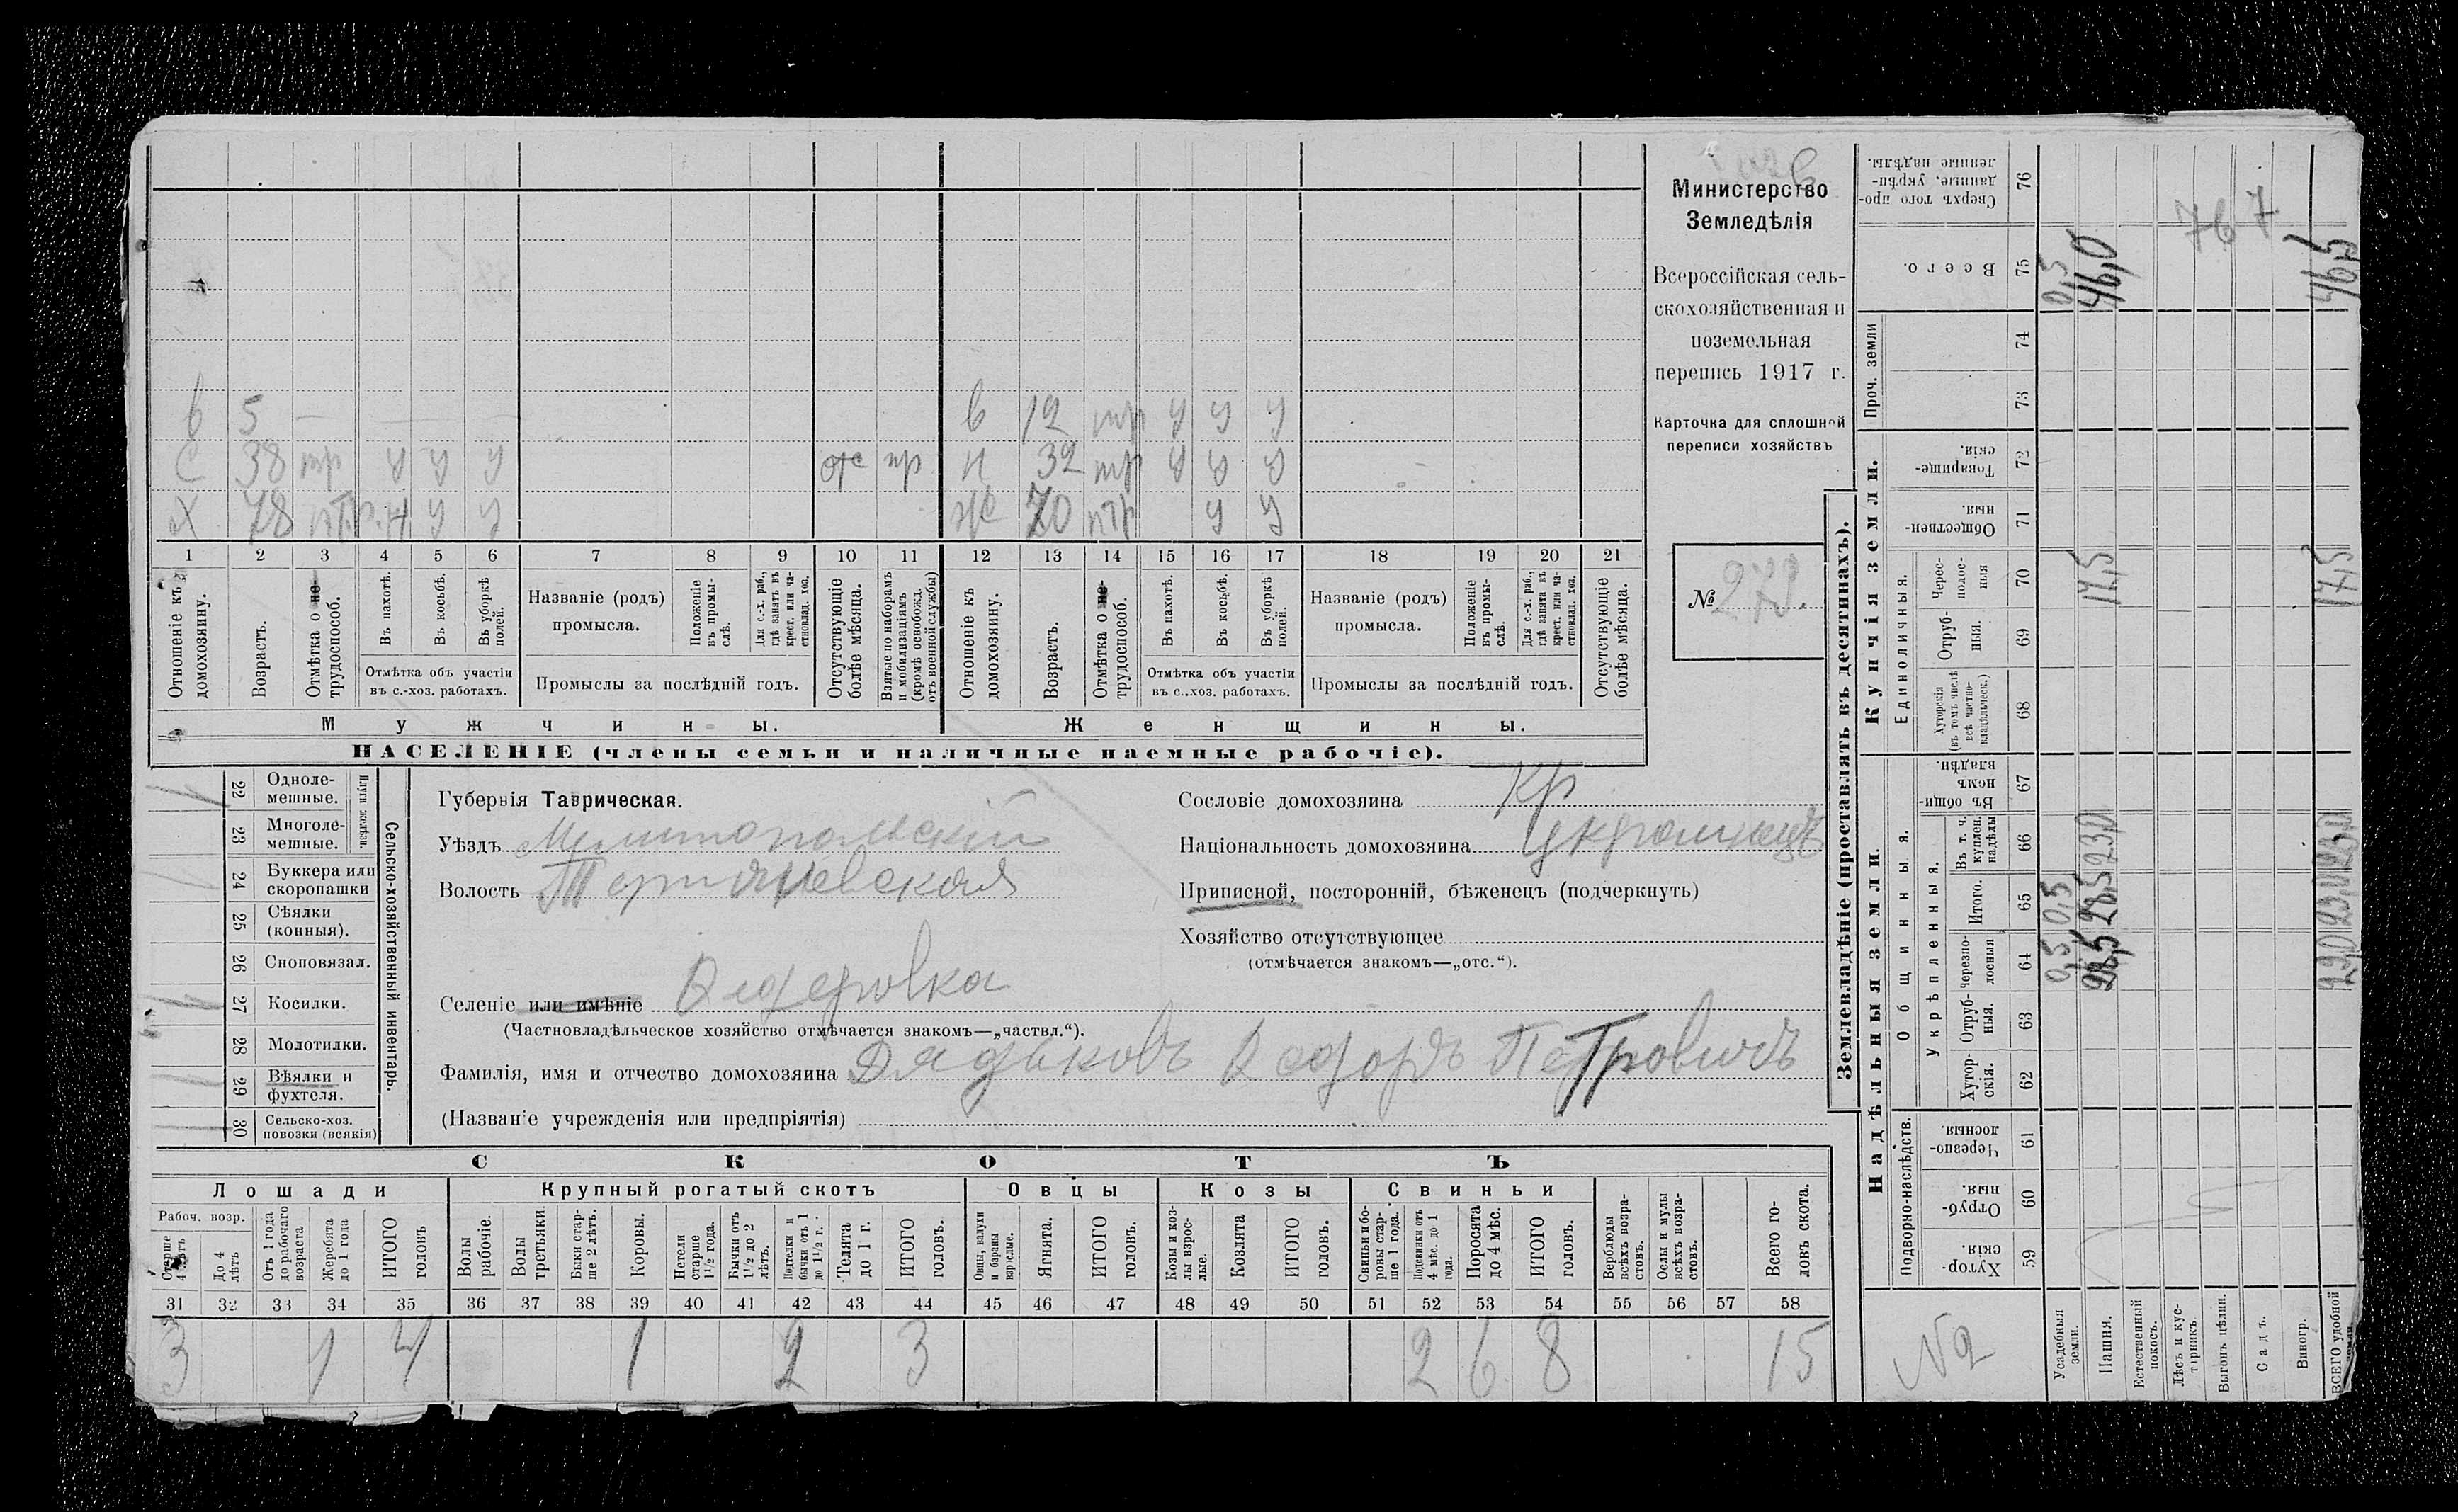 Министерство
Земледѣлія
Всероссійская сель-
скохозяйственная и
поземельная
перепись 1917 г.
Карточка для сплошной
переписи хозяйствъ
№
в 5 — — —
в 12 тр у у у
С 38 тр у у у отс пр
н 32 тр у у у
Х 78 птр. н у у
Ж 70 птр у у
1 2 3 4 5 6 7 8 9 10 11 12 13 14 15 16 17 18 19 20 21
Отношеніе къ домохозяину.
Возрастъ.
Отмѣтка о не-трудоспособ.
Въ пахотѣ.
Въ косьбѣ.
Въ уборкѣ полей.
Отмѣтка объ участіи
въ с.-хоз. работахъ.
Названіе (родъ)
промысла.
Положеніе въ промы-слѣ.
Для с.-х. раб., гдѣ занятъ въ крест. или ча-стновлад. хоз.
Промыслы за послѣдній годъ.
Отсутствующіе болѣе мѣсяца.
Взятые по наборамъ и мобилизаціямъ (кромѣ освобожд. отъ военной службы)
Отношеніе къ домохозяину.
Возрастъ.
Отмѣтка о не-трудоспособ.
Въ пахотѣ.
Въ косьбѣ.
Въ уборкѣ полей.
Отмѣтка объ участіи
въ с.-хоз. работахъ.
Названіе (родъ)
промысла.
Положеніе въ промы-слѣ.
Для с.-х. раб., гдѣ занята въ крест. или ча-стновлад. хоз.
Промыслы за послѣдній годъ.
Отсутствующіе болѣе мѣсяца.
Мужчины.
Женщины.
НАСЕЛЕНІЕ (члены семьи и наличные наемные рабочіе).
Сельско-хозяйственный инвентарь.
Плуги желѣзн.
22 Одноле-мешные.
23 Многоле-мешные.
24 Буккера или скоропашки
25 Сѣялки (конныя).
26 Сноповязал.
27 Косилки.
28 Молотилки.
29 Вѣялки и фухтеля.
30 Сельско-хоз. повозки (всякія)
Губернія Таврическая.
Уѣздъ Мелитопольскій
Волость
Селеніе или имѣніе Федоровка
(Частновладѣльческое хозяйство отмѣчается знакомъ—„частвл.“).
Фамилія, имя и отчество домохозяина Дядьковъ Федоръ Петровичъ
(Названіе учрежденія или предпріятія)
Сословіе домохозяина кр
Національность домохозяина украинецъ
Приписной, посторонній, бѣженецъ (подчеркнуть)
Хозяйство отсутствующее
(отмѣчается знакомъ—„отс.“).
СКОТЪ
Лошади
Крупный рогатый скотъ
Овцы
Козы
Свиньи
Рабоч. возр.
Старше 4 лѣтъ
До 4 лѣтъ
Отъ 1 года до рабочаго возраста
Жеребята до 1 года
ИТОГО головъ
Волы рабочіе.
Волы третьяки.
Быки стар-ше 2 лѣтъ.
Коровы.
Нетели старше 1½ года.
Бычки отъ 1½ до 2 лѣтъ.
Подтелки и бычки отъ 1 до 1½ г.
Телята до 1 г.
ИТОГО головъ.
Овцы, валухи и бараны взрослые.
Ягнята.
ИТОГО головъ.
Козы и коз-лы взрос-лые.
Козлята
ИТОГО головъ.
Свиньи и бо-ровы стар-ше 1 года.
Подсвинки отъ 4 мѣс. до 1 года.
Поросята до 4 мѣс.
ИТОГО головъ.
Верблюды всѣхъ возра-стовъ.
Ослы и мулы всѣхъ возра-стовъ.
Всего го-ловъ скота.
31 32 33 34 35 36 37 38 39 40 41 42 43 44 45 46 47 48 49 50 51 52 53 54 55 56 57 58
3 1 4 1 2 3 2 6 8 15
Землевладѣніе (проставлять въ десятинахъ).
Надѣльныя земли.
Купчія земли.
Проч. земли
Подворно-наслѣдств.
Общинныя.
Укрѣпленныя.
Единоличныя.
59 Хутор-скія.
60 Отруб-ныя.
61 Черезпо-лосныя.
62 Хутор-скія.
63 Отруб-ныя.
64 Черезпо-лосныя
65 Итого.
66 Въ т. ч. куплен. надѣлы
67 Въ общи-номъ владѣн.
68 Хуторскія (въ томъ числѣ всѣ частно-владѣльческ.)
69 Отруб-ныя.
70 Черес-полос-ныя
71 Обществен-ныя.
72 Товарище-скія.
73
74
75 Всего.
76 Сверхъ того про-данные, укрѣп-ленные надѣлы.
Усадебныя земли. 0,5 0,5 0,5
Пашня. 28,5 28,5 23,0 17,5 46,0
Естественный покосъ.
Лѣсъ и кус-тарникъ.
Выгонъ цѣлин.
Садъ.
Виногр.
ВСЕГО удобной земли. 29,0 17,5 46,5
767
№2